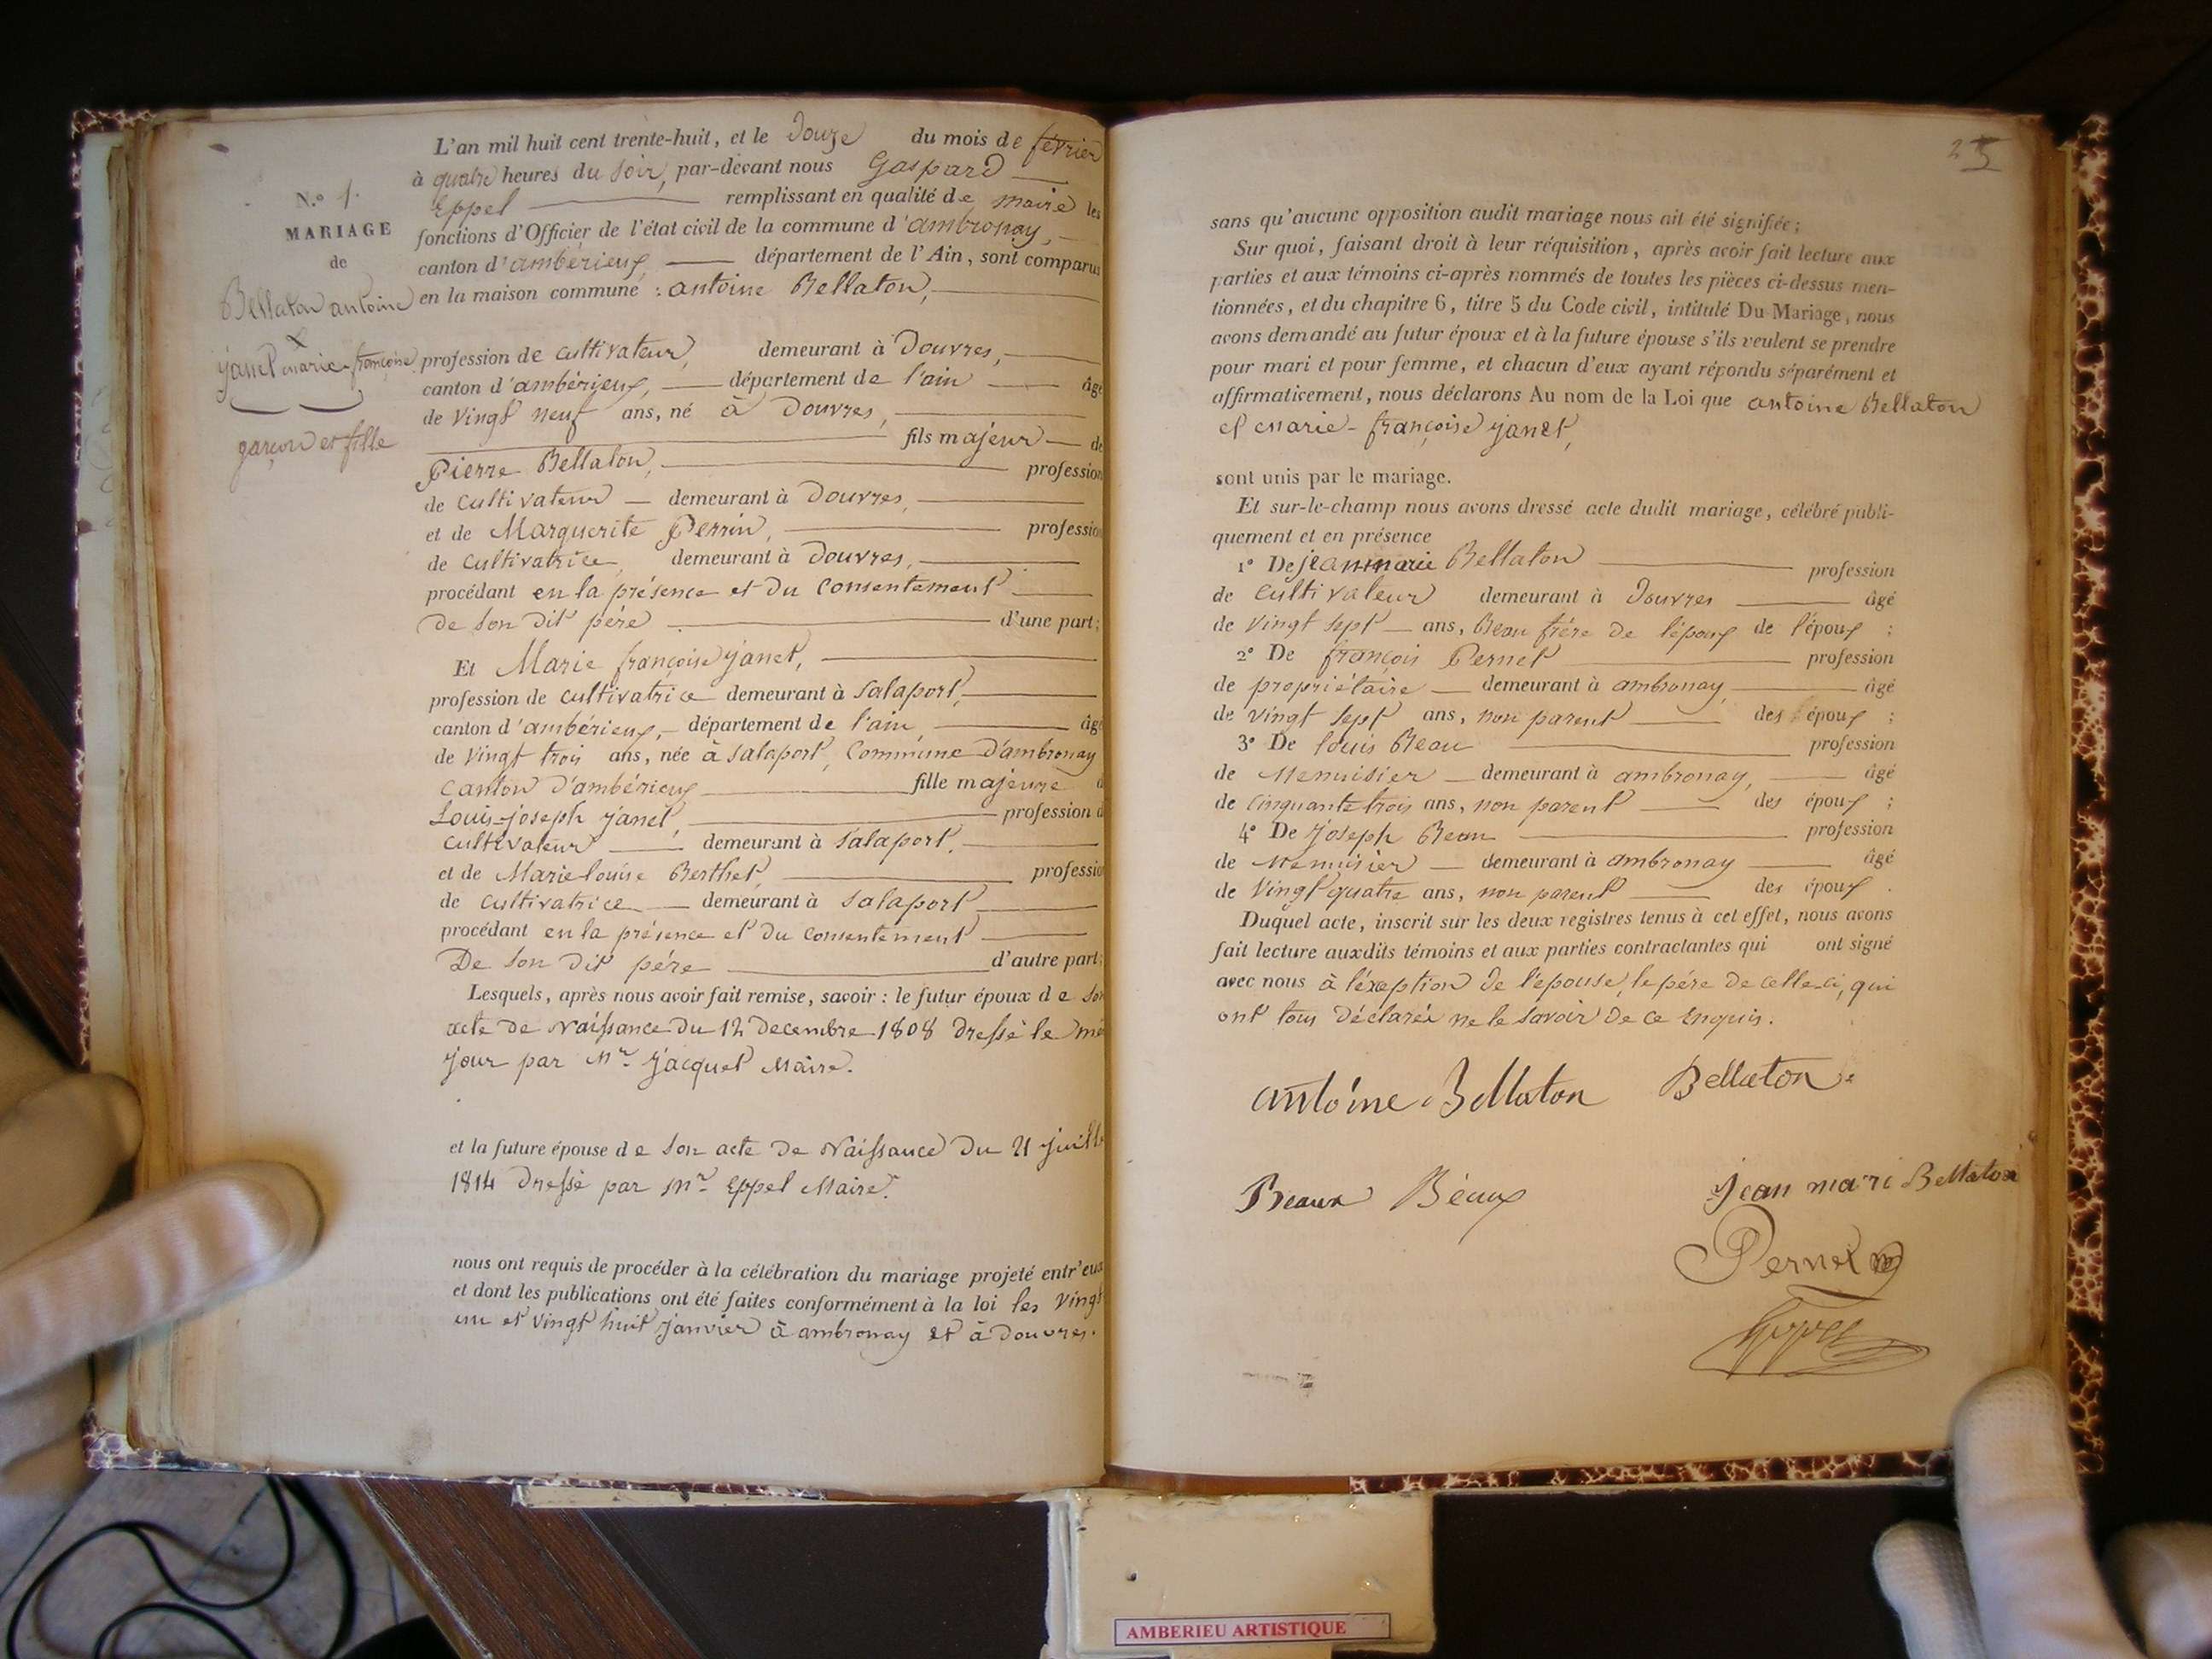 N.o 1.
MARIAGE
de
Bellaton antoine
&
janet marie-françoise
garçon et fille
L'an mil huit cent trente-huit, et le Douze du mois de février
à quatre heures du soir, par-devant nous Gaspard
Eppel remplissant en qualité de maire les
fonctions d'Officier de l'état civil de la commune d'ambronay,
canton d'ambérieux, département de l'Ain, sont comparus
en la maison commune : antoine Bellaton,
profession de cultivateur, demeurant à Douvres,
canton d'ambérieux, département de l'ain âgé
de vingt neuf ans, né à Douvres,
fils majeur de
Pierre Bellaton, profession
de cultivateur demeurant à Douvres,
et de Marguerite Perrin, profession
de cultivatrice, demeurant à Douvres,
procédant en la présence et du consentement
de son dit père d'une part;
Et Marie françoise janet,
profession de cultivatrice demeurant à salaport,
canton d'ambérieux, département de l'ain, âgé
de vingt trois ans, née à salaport, Commune d'ambronay
canton d'ambérieux fille majeure d
Louis-joseph janet, profession d
cultivateur demeurant à salaport,
et de Marie louise Berthet, profession
de cultivatrice demeurant à salaport
procédant en la présence et du consentement
De son dit père d'autre part;
Lesquels, après nous avoir fait remise, savoir : le futur époux de son
acte de naissance du 12 decembre 1808 dressé le mê
jour par Mr. jacquet Maire.
et la future épouse de son acte de Naissance du 21 juille
1814 dressé par Mr. Eppel Maire.
nous ont requis de procéder à la célébration du mariage projeté entr'eux
et dont les publications ont été faites conformément à la loi les vingt
un et vingt huit janvier à ambronay et à douvres.
25
sans qu'aucune opposition audit mariage nous ait été signifiée;
Sur quoi, faisant droit à leur réquisition, après avoir fait lecture aux
parties et aux témoins ci-après nommés de toutes les pièces ci-dessus men-
tionnées, et du chapitre 6, titre 5 du Code civil, intitulé Du Mariage, nous
avons demandé au futur époux et à la future épouse s'ils veulent se prendre
pour mari et pour femme, et chacun d'eux ayant répondu séparément et
affirmativement, nous déclarons Au nom de la Loi que antoine Bellaton
et marie-françoise janet,
sont unis par le mariage.
Et sur-le-champ nous avons dressé acte dudit mariage, célébré publi-
quement et en présence
1° De jean marie Bellaton profession
de cultivateur demeurant à Douvres âgé
de vingt sept ans, Beau frère de l'époux de l'époux ;
2° De françois Pernet profession
de propriétaire demeurant à ambronay, âgé
de vingt sept ans, non parent des époux ;
3° De louis Beau profession
de Menuisier demeurant à ambronay, âgé
de cinquante trois ans, non parent des époux ;
4° De joseph Beau profession
de Menuisier demeurant à ambronay âgé
de vingt quatre ans, non parent des époux .
Duquel acte, inscrit sur les deux registres tenus à cet effet, nous avons
fait lecture auxdits témoins et aux parties contractantes qui ont signé
avec nous à l'éxeption de l'épouse, le père de celle-ci, qui
ont tous déclarés ne le savoir de ce enquis.
antoine Bellaton Bellaton
Beaux Béaux
jean marie Bellaton
Pernet
Eppel
AMBERIEU ARTISTIQUE